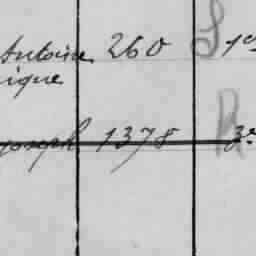 Antoine 260 S 1er
ique
Joseph 1378 R 3e